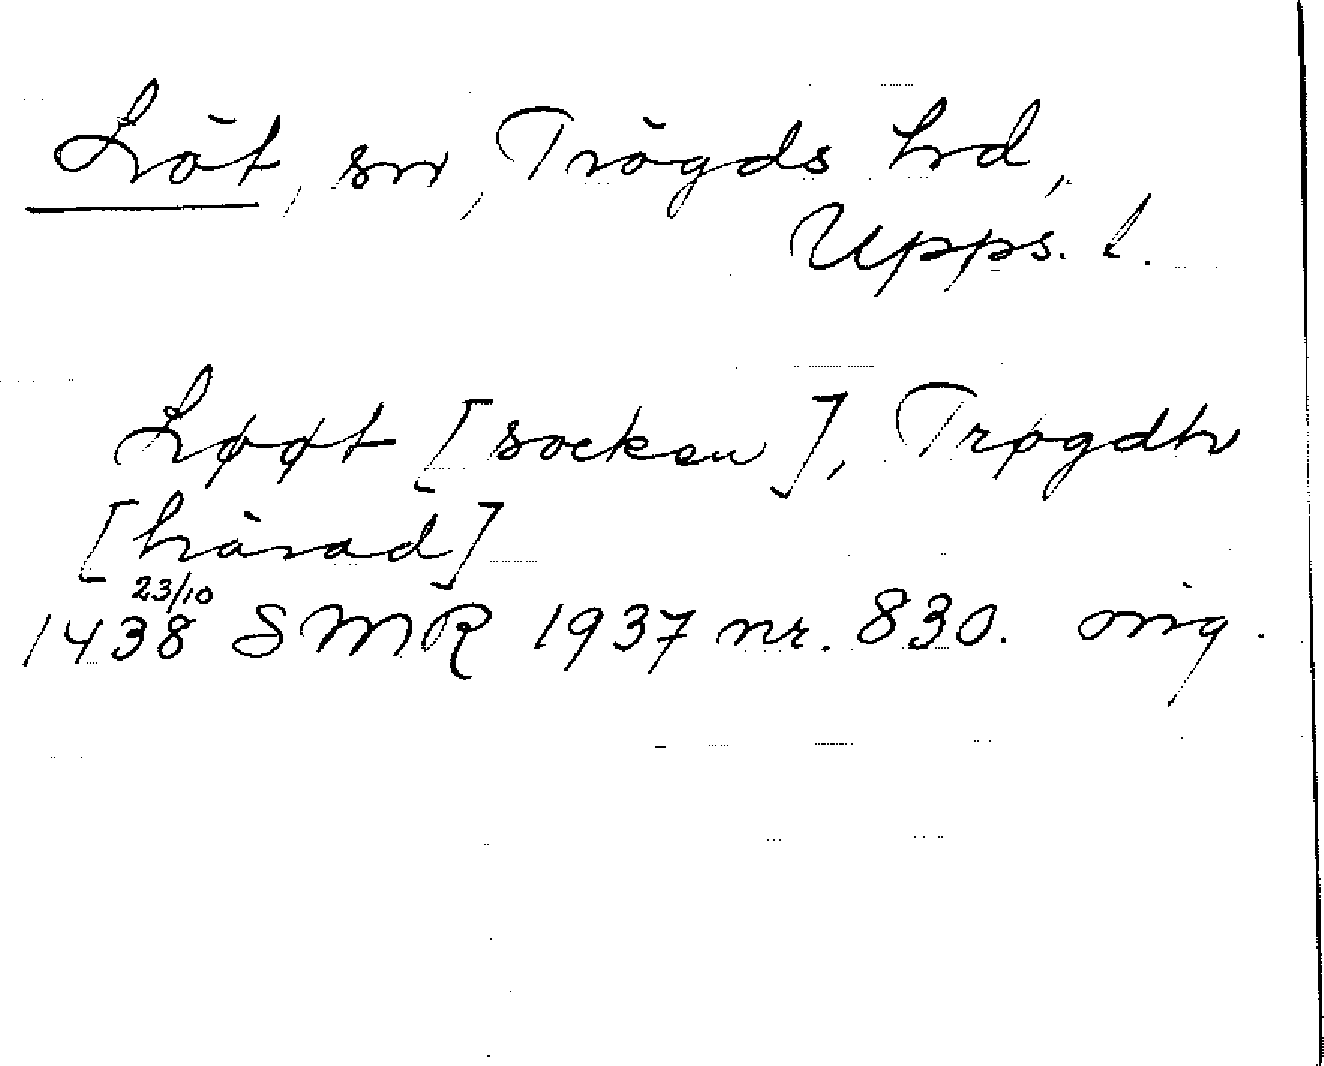 Löt, sn, Trögds hd,
Upps. l.
Løøt [socken], Trøgdh
[härad]
1438 23/10 SMR 1937 nr. 830. orig.